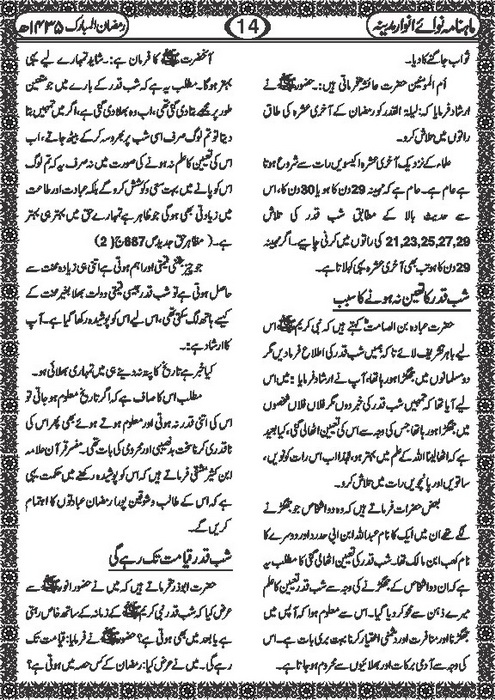 ماہنامہ نوائے انوار مدینہ
14
رمضان المبارک ۱۴۳۵ھ
ثواب جاگنے کا دیا۔
اُم المؤمنین حضرت عائشہ فرماتی ہیں: حضور ﷺ نے
ارشاد فرمایا کہ: لیلۃ القدر کو رمضان کے آخری عشرہ کی طاق
راتوں میں تلاش کرو۔
علماء کے نزدیک آخری عشرہ اکیسویں رات سے شروع ہوتا
ہے عام ہے۔ عام ہے کہ مہینہ 29 دن کا ہو یا 30 دن کا، اس
سے حدیث بالا کے مطابق شب قدر کی تلاش
21,23,25,27,29 کی راتوں میں کرنی چاہیے۔ اگر مہینہ
29 دن کا ہو تب بھی آخری عشرہ یہی کہلاتا ہے۔
شب قدر کا تعین نہ ہونے کا سبب
حضرت عبادہ بن الصامت کہتے ہیں کہ نبی کریم ﷺ اس
لیے باہر تشریف لائے تا کہ ہمیں شب قدر کی اطلاع فرمادیں مگر
دو مسلمانوں میں جھگڑا ہو رہا تھا، آپ نے ارشاد فرمایا: میں اس
لیے آیا تھا کہ تمہیں شب قدر کی خبر دوں مگر فلاں فلاں شخصوں
میں جھگڑا ہو رہا تھا، جس کی وجہ سے اس کی تعیین اٹھالی گئی، کیا بعید
ہے کہ اٹھالینا اللہ کے علم میں بہتر ہو، لہٰذا اب اس رات کو نویں،
ساتویں اور پانچویں رات میں تلاش کرو۔
بعض حضرات فرماتے ہیں کہ وہ دو اشخاص جو جھگڑنے
لگے تھے ان میں ایک کا نام عبداللہ ابن ابی حدرد اور دوسرے کا
نام کعب ابن مالک تھا۔ شب قدر کی تعیین اٹھالی گئی کا مطلب یہ
ہے کہ ان دو اشخاص کے جھگڑنے کی وجہ سے شب قدر کی تعیین کا علم
میرے ذہن سے محو کر دیا گیا۔ اس سے معلوم ہوا کہ آپس میں
جھگڑنا اور منافرت اور دشمنی اختیار کرنا بہت بری بات ہے۔ اس
کی وجہ سے آدمی برکات اور بھلائیوں سے محروم ہو جاتا ہے۔
آنحضرت ﷺ کا فرمان ہے: شاید تمہارے لیے یہی
بہتر ہوگا۔ مطلب یہ ہے کہ شب قدر کے بارے میں جو متعین
طور پر مجھے بتادی گئی تھی، اب وہ بھلا دی گئی ہے، اگر میں تمہیں بتا
دیتا تو تم لوگ صرف اسی شب پر بھروسہ کر کے بیٹھ جاتے، اب
اس کی تعیین کا علم نہ ہونے کی صورت میں نہ صرف یہ کہ تم لوگ
اس کو پانے میں بہت سعی و کوشش کرو گے بلکہ عبادت اور طاعت
میں زیادتی بھی ہوگی جو ظاہر ہے تمہارے حق میں بہتر ہی بہتر
ہے۔ (مظاہر حق جدید ص 687 ج 2)
جو چیز جتنی قیمتی اور اہم ہوتی ہے اتنی ہی زیادہ محنت سے
حاصل ہوتی ہے تو شب قدر جیسی قیمتی دولت بھلا بغیر محنت کے
کیسے ہاتھ لگ سکتی تھی، اس لیے اس کو پوشیدہ رکھا گیا ہے۔ آپ
کا ارشاد ہے:
کیا خبر ہے تاریخ کا پتہ نہ دینے ہی میں تمہاری بھلائی ہو۔
مطلب اس کا صاف ہے کہ اگر تاریخ معلوم ہو جاتی تو
اس کی اتنی قدر نہ ہوتی اور معلوم ہوتے ہوئے بھی پھر اس کی
ناقدری کرنا سخت بدنصیبی اور محرومی کی بات تھی۔ مفسر قرآن علامہ
ابن کثیر دمشقی فرماتے ہیں کہ اس کو پوشیدہ رکھنے میں حکمت یہی
ہے کہ اس کے طالب و شوقین پورا رمضان عبادتوں کا اہتمام
کریں گے۔
شب قدر قیامت تک رہے گی
حضرت ابوذر فرماتے ہیں: کہ میں نے حضور انور ﷺ سے
عرض کیا کہ شب قدر نبی کریم ﷺ کے زمانہ کے ساتھ خاص رہتی
ہے یا بعد میں بھی ہوتی ہے؟ حضور ﷺ نے فرمایا: قیامت تک
رہے گی۔ میں نے عرض کیا: رمضان کے کس حصہ میں ہوتی ہے؟